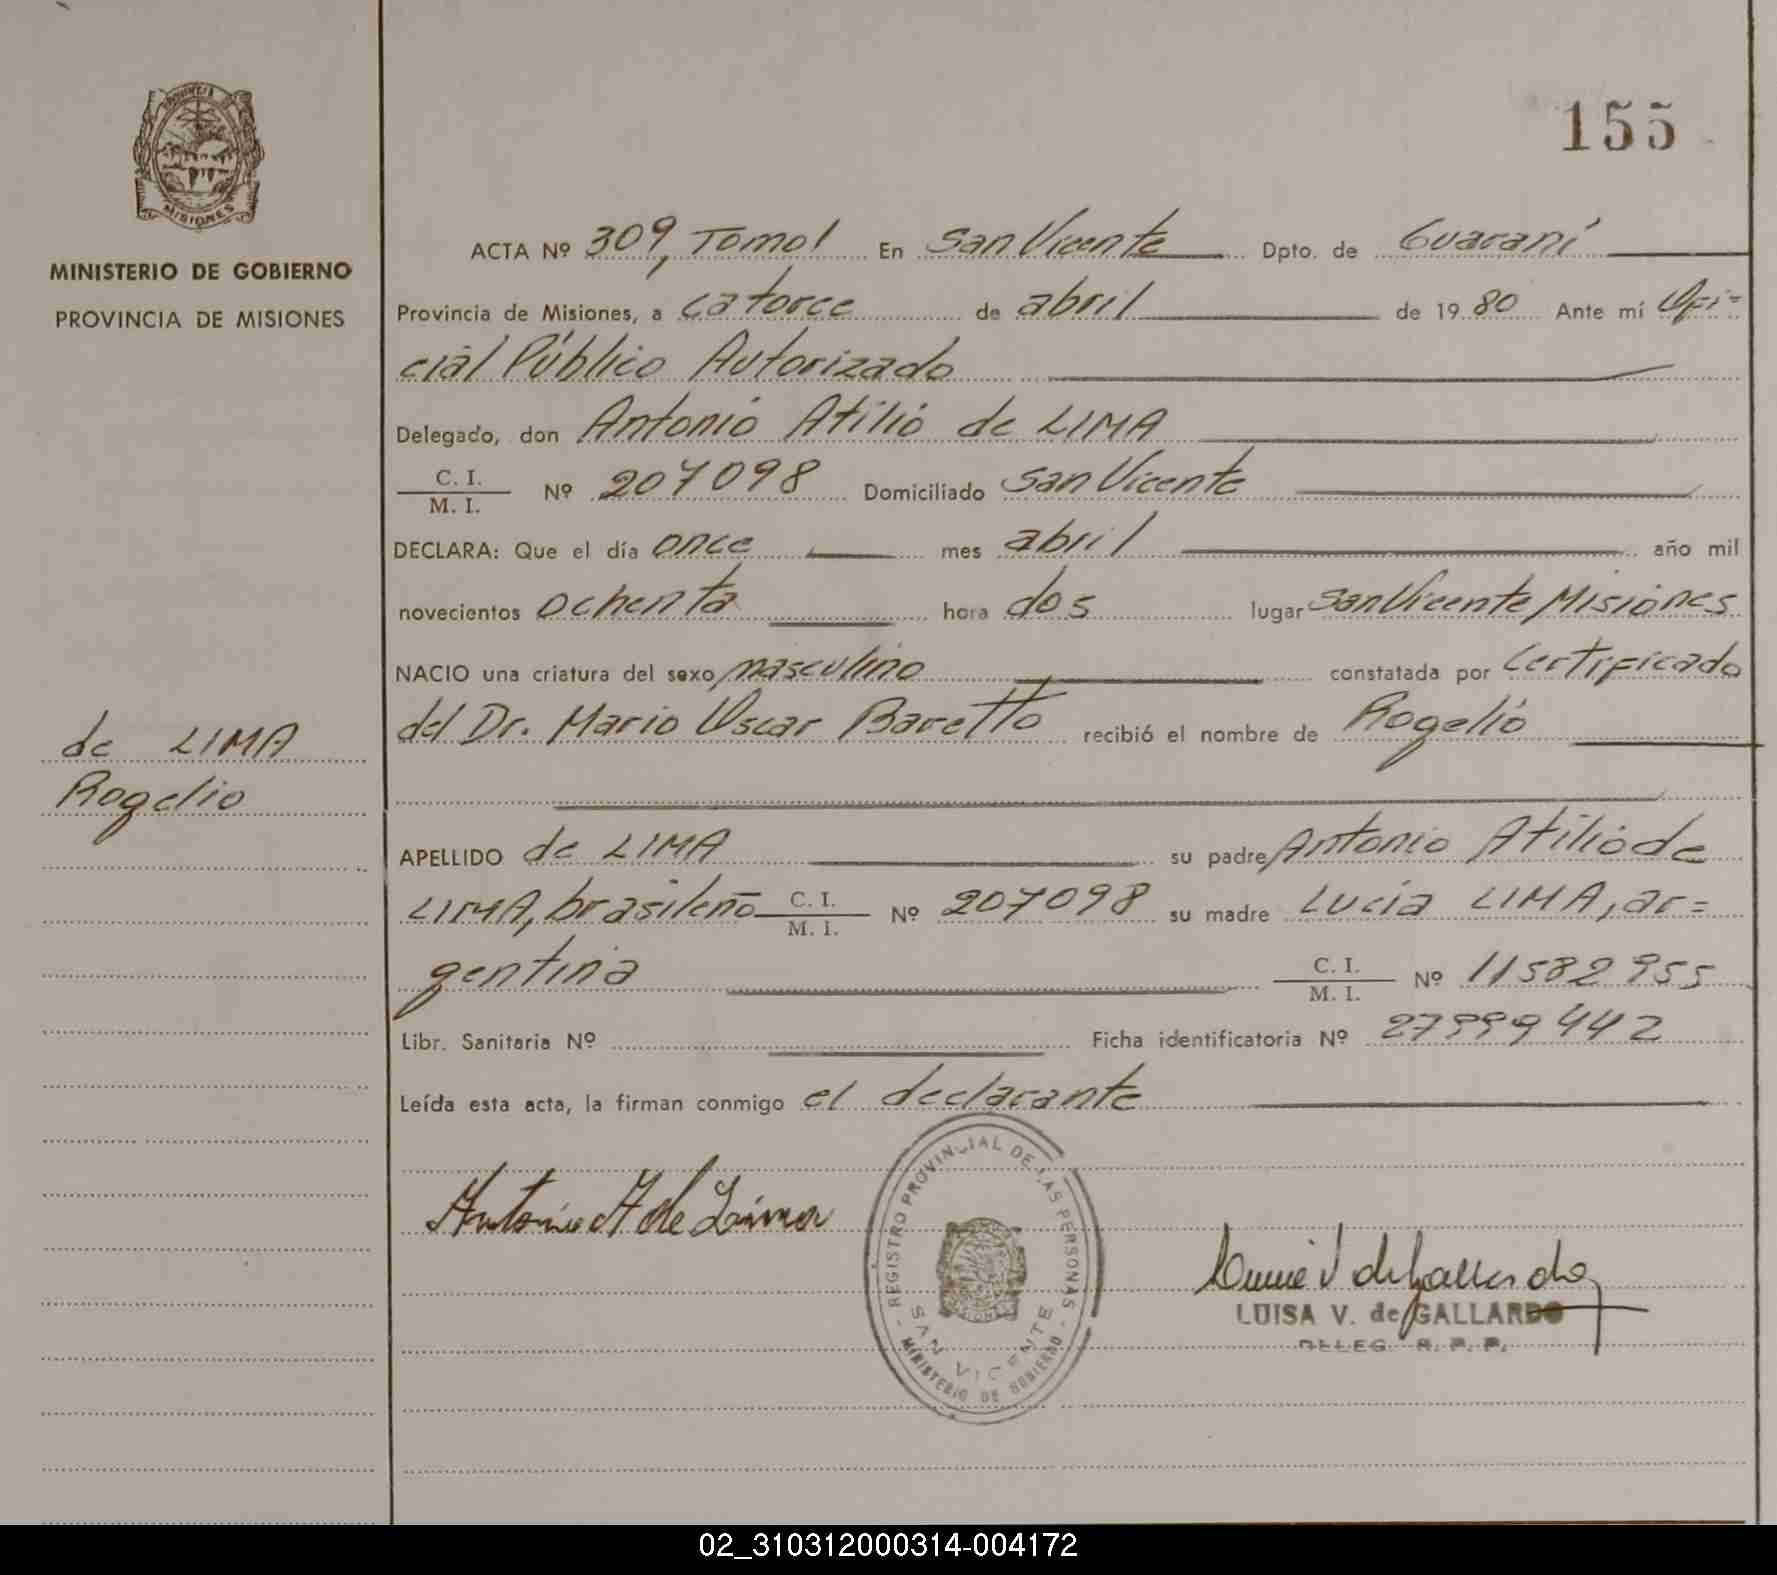 155
PROVINCIA
MISIONES
MINISTERIO DE GOBIERNO
PROVINCIA DE MISIONES
ACTA Nº 309, Tomo I En San Vicente Dpto. de Guaraní
Provincia de Misiones, a catorce de abril de 19 80 Ante mí Ofi=
cial Público Autorizado
Delegado, don Antonio Atilio de LIMA
C. I.
M. I. Nº 207098 Domiciliado San Vicente
DECLARA: Que el día once mes abril año mil
novecientos ochenta hora dos lugar San Vicente Misiones
NACIO una criatura del sexo masculino constatada por Certificado
del Dr. Mario Oscar Baretto recibió el nombre de Rogelio
de LIMA
Rogelio
APELLIDO de LIMA su padre Antonio Atilio de
LIMA, brasileño C. I. M. I. Nº 207098 su madre Lucia LIMA, ar=
gentina C. I. M. I. Nº 11582955
Libr. Sanitaria Nº Ficha identificatoria Nº 27999442
Leída esta acta, la firman conmigo el declarante
Antonio A de Lima
REGISTRO PROVINCIAL DE LAS PERSONAS
SAN VICENTE
MINISTERIO DE GOBIERNO
LUISA V. de GALLARDO
DELEG. R. P. P.
02_310312000314-004172